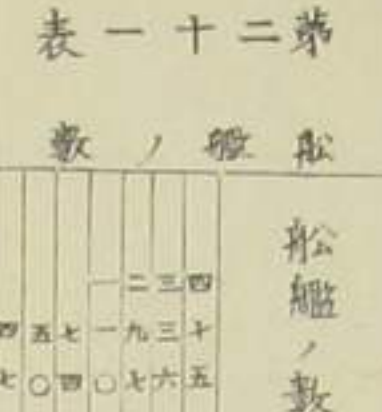 苐二十一表
舩艦ノ數
舩艦ノ數
四十五
三三六
二九七
一一〇
七四
五〇
四七